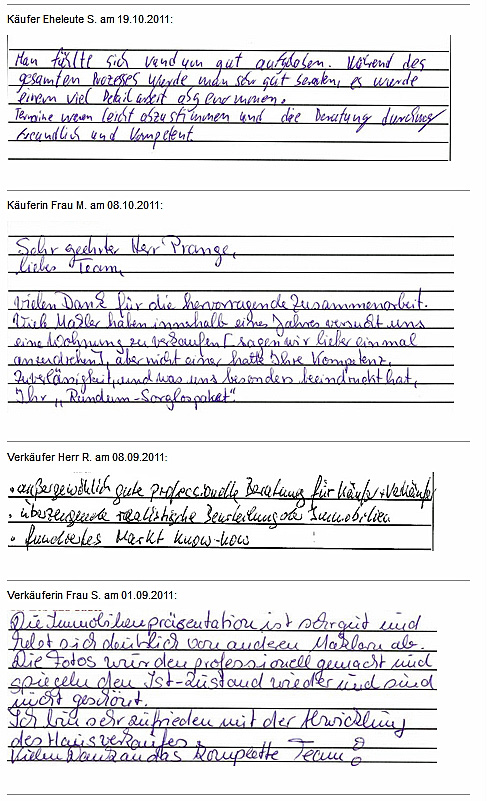 Käufer Eheleute S. am 19.10.2011:
Man fühlte sich rundum gut aufgehoben. Während des
gesamten Prozesses wurde man sehr gut beraten, es wurde
einem viel Detailarbeit abgenommen.
Termine waren leicht abzustimmen und die Beratung durchweg
freundlich und kompetent.
Käuferin Frau M. am 08.10.2011:
Sehr geehrter Herr Prange,
liebes Team,
vielen Dank für die hervorragende Zusammenarbeit.
Viele Makler haben innerhalb eines Jahres versucht uns
eine Wohnung zu verkaufen [sagen wir lieber einmal
anzudrehen], aber nicht einer hatte Ihre Kompetenz,
Zuverlässigkeit, und was uns besonders beeindruckt hat,
Ihr "Rundum-Sorglospaket".
Verkäufer Herr R. am 08.09.2011:
• außergewöhnlich gute professionelle Beratung für Käufer + Verkäufer
• überzeugende realistische Beurteilung der Immobilien
• fundiertes Markt know-how
Verkäuferin Frau S. am 01.09.2011:
Die Immobilienpräsentation ist sehr gut und
hebt sich deutlich von anderen Maklern ab.
Die Fotos wurden professionell gemacht und
spiegeln den Ist-Zustand wieder und sind
nicht geschönt.
Ich bin sehr zufrieden mit der Abwicklung
des Hausverkaufes.
Vielen Dank an das komplette Team!